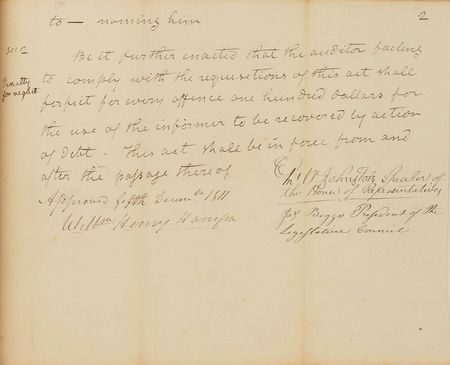 to — naming him
2
Sec 2
Be it further enacted that the auditor failing
Penalty
for neglect
to comply with the requisetions of this act shall
forfeit for every offence one hundred dollars for
the use of the informer to be recovered by action
of debt. This act shall be in force from and
after the passage thereof
Johnston Speaker of
the House of Representatives
Approved fifth Decemr 1811
Willm Henry Harrison
Js Beggs President of the
Legislative Council